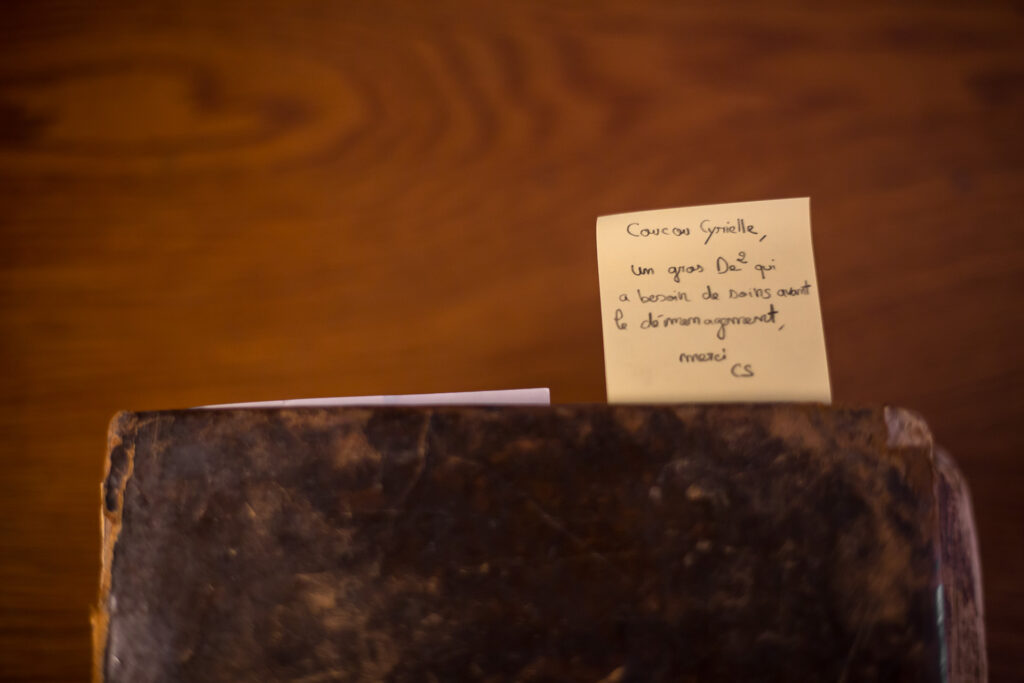 Coucou Cyrielle,
un gros De² qui
a besoin de soins avant
le déménagement,
merci
CS